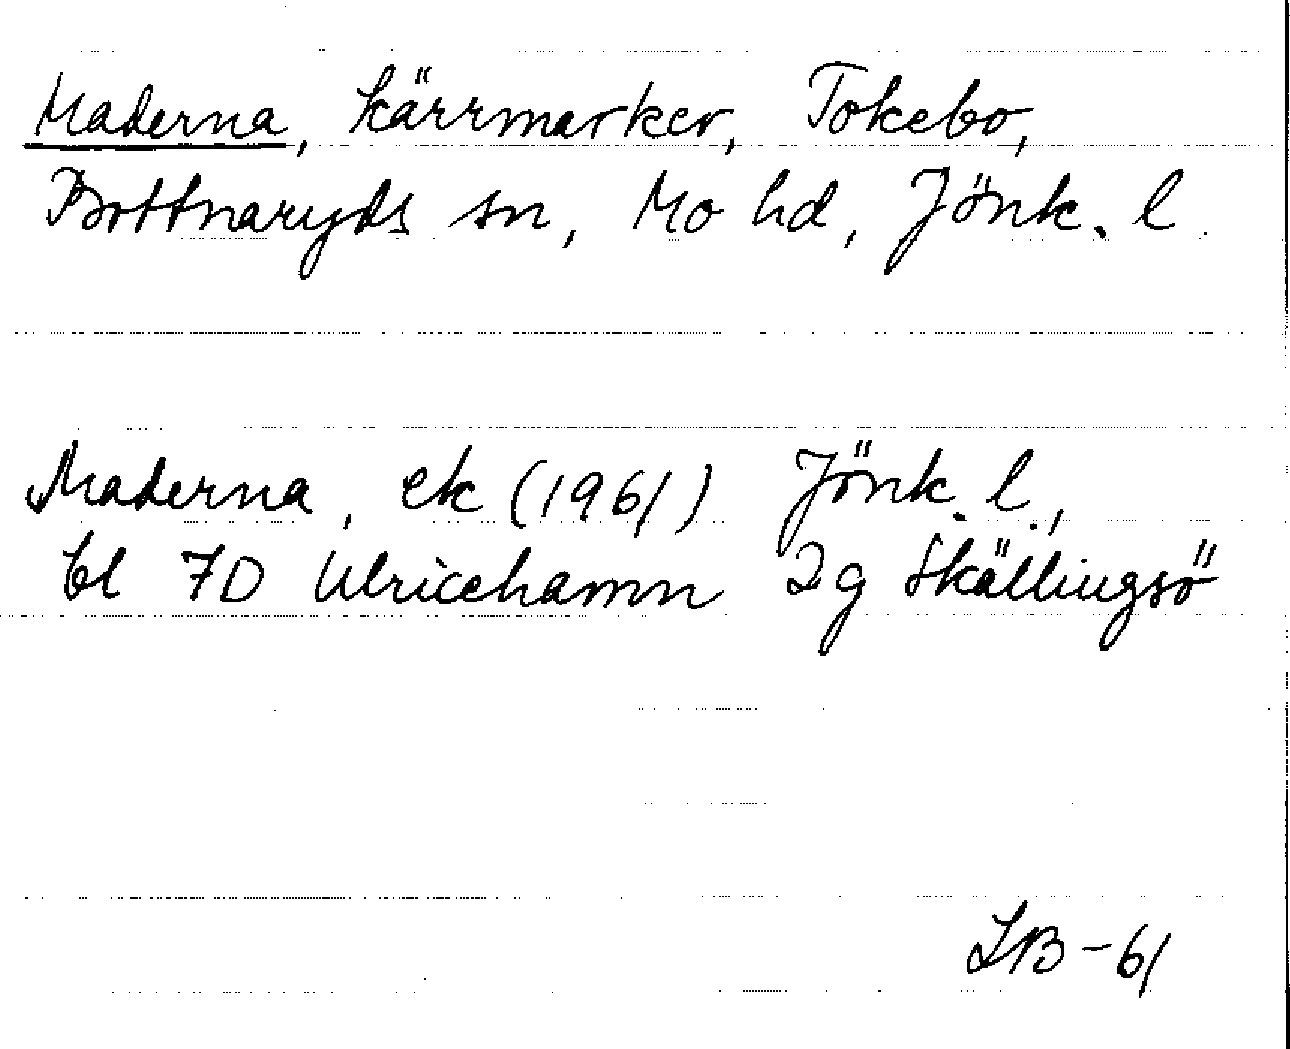 Maderna, kärrmarker, Tokebo,
Bottnaryds sn, Mo hd, Jönk. l.
Maderna, ek (1961) Jönk. l.,
bl 7D Ulricehamn 2g Skällingsö
LB-61